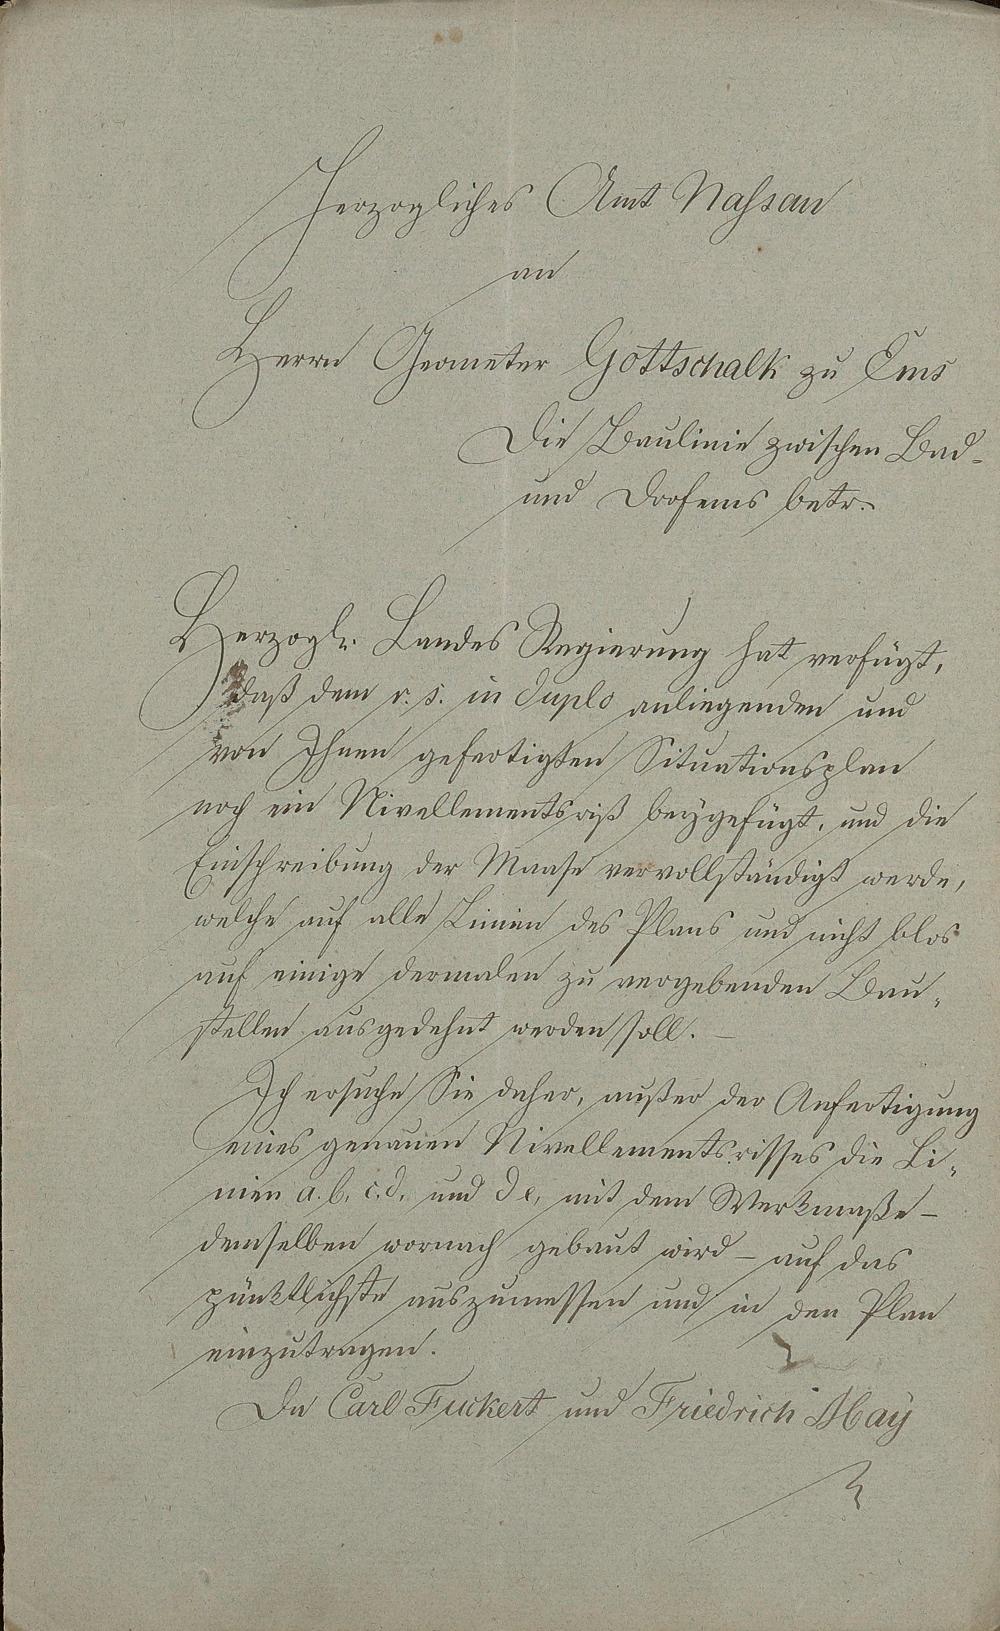 Herzogliches Amt Nassau
an
Herrn Geometer Gottschalk zu Ems
Die Baulinie zwischen Bad-
und Dorfems betr.
Herzogl. Landes Regierung hat verfügt,
daß dem r. s. in duplo anliegenden und
von Ihnen gefertigten Situationsplan
noch ein Nivellementsriß beygefügt, und die
Einschreibung der Maase vervollständigt werde,
welche auf alle Linien des Plans und nicht blos
auf einige dermalen zu vergebenden Bau-
stellen ausgedehnt werden soll. –
Ich ersuche Sie daher, außer der Anfertigung
eines genauen Nivellementsrisses die Li-
nien a. b, c. d, und d e, mit dem Werkmaße –
demselben wornach gebaut wird – auf das
pünktlichste auszumessen und in den Plan
einzutragen.
Da Carl Fuckert und Friedrich May